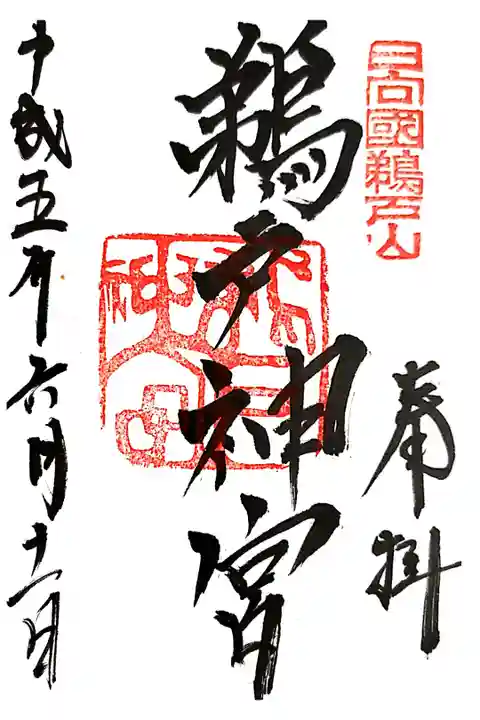 日向國鵜戸山
奉拝
鵜戸神宮
鵜戸神宮
平成五年六月十一日